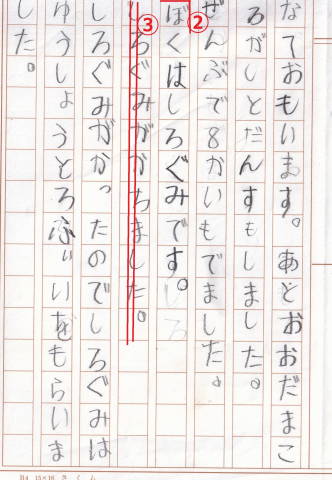 なておもいます。あとおおだまこ
ろがしとだんすもしました。
②
ぜんぶで8かいもでました。
ぼくはしろぐみです。
③
しろぐみがかちました。
しろぐみがかったのでしろぐみは
ゆうしょうとろふぃいをもらいま
した。
B4 15×16